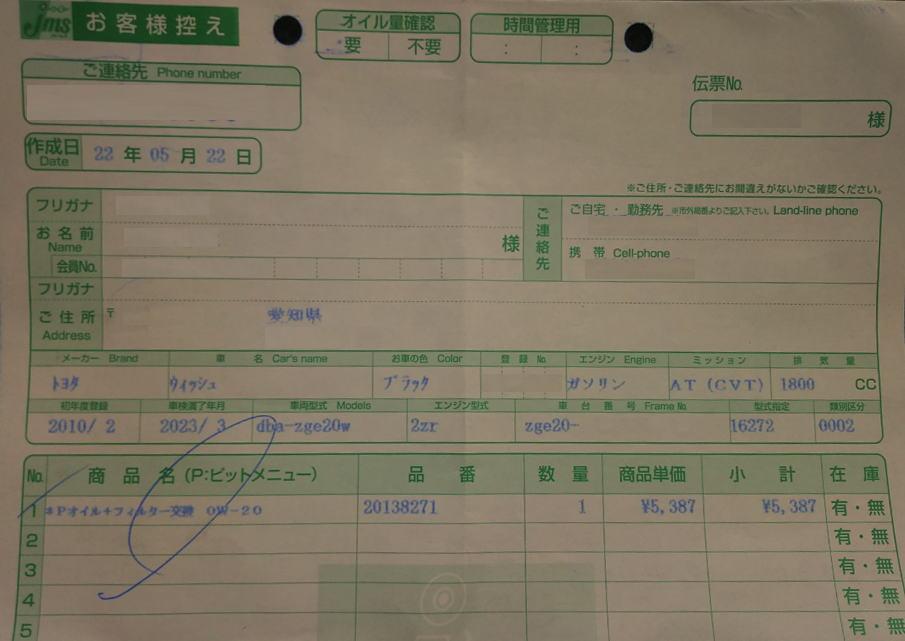 jms お客様控え
オイル量確認
要 不要
時間管理用
: :
ご連絡先 Phone number
伝票No.
様
作成日 Date 22 年 05 月 22 日
※ご住所・ご連絡先にお間違えがないかご確認ください。
フリガナ
お名前 Name 様
会員No.
ご連絡先
ご自宅・勤務先 ※市外局番よりご記入下さい。 Land-line phone
携帯 Cell-phone
フリガナ
ご住所 Address 〒 愛知県
メーカー Brand 車名 Car's name お車の色 Color 登録No. エンジン Engine ミッション 排気量
トヨタ ウィッシュ ブラック ガソリン AT (CVT) 1800 CC
初年度登録 車検満了年月 車両型式 Models エンジン型式 車台番号 Frame No 型式指定 類別区分
2010/ 2 2023/ 3 dba-zge20w 2zr zge20- 16272 0002
No. 商品名 (P:ピットメニュー) 品番 数量 商品単価 小計 在庫
1 *Pオイル+フィルター交換 0W-20 20138271 1 ¥5,387 ¥5,387 有・無
2 有・無
3 有・無
4 有・無
5 有・無